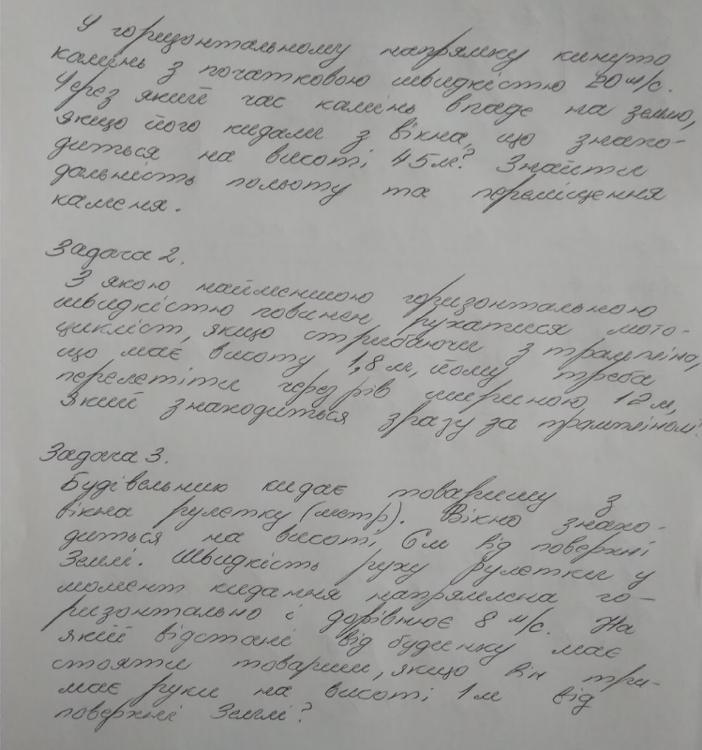 У горизонтальному напрямку кинуто
камінь з початковою швидкістю 20 м/с.
Через який час камінь впаде на землю,
якщо його кидали з вікна, що знахо-
диться на висоті 45м? Знайти
дальність польоту та переміщення
каменя.
Задача 2.
З якою найменшою горизонтальною
швидкістю повинен рухатися мото-
цикліст, якщо стрибаючи з трампліна,
що має висоту 1,8 м, йому треба
перелетіти через рів шириною 12 м,
Який знаходиться зразу за трампліном?
Задача 3.
Будівельник кидає товаришу з
вікна рулетку (метр). Вікно знахо-
диться на висоті 6м від поверхні
Землі. Швидкість руху рулетки у
момент кидання напрямлена го-
ризонтально і дорівнює 8 м/с. На
якій відстані від будинку має
стояти товариш, якщо він три-
має руки на висоті 1 м від
поверхні Землі?